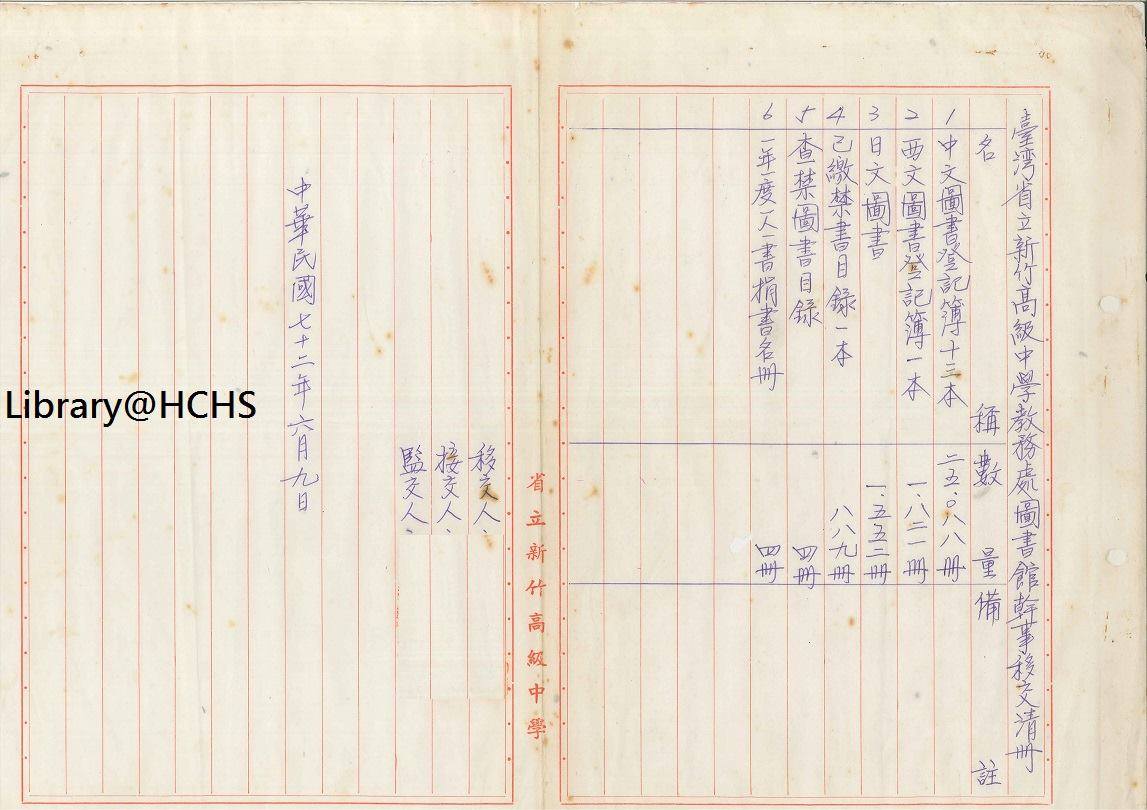 臺湾省立新竹高級中學教務處圖書館幹事移交清冊
名稱 數量 備註
1 中文圖書登記簿十三本 二五.〇八八冊
2 西文圖書登記簿一本 一.八二一冊
3 日文圖書 一.五五二冊
4 已繳禁書目錄一本 八八九冊
5 查禁圖書目錄 四冊
6 一年度一人一書捐書名冊 四冊
省立新竹高級中學
移交人、
接交人、
監交人、
中華民國七十二年六月九日
Library@HCHS